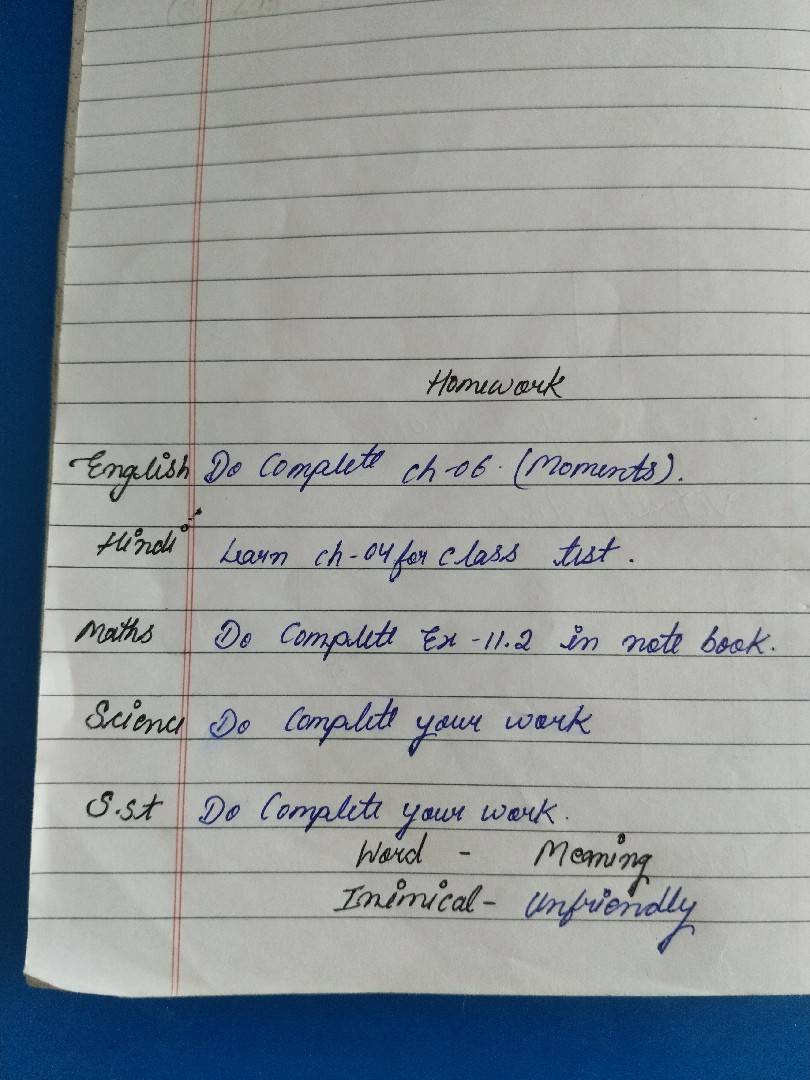 Homework
English Do Complete ch-06. (Moments).
Hindi Learn ch-04 for class test.
Maths Do Complete Ex-11.2 in note book.
Science Do Complete your work
S.st Do Complete your work.
Word - Meaning
Inimical - Unfriendly